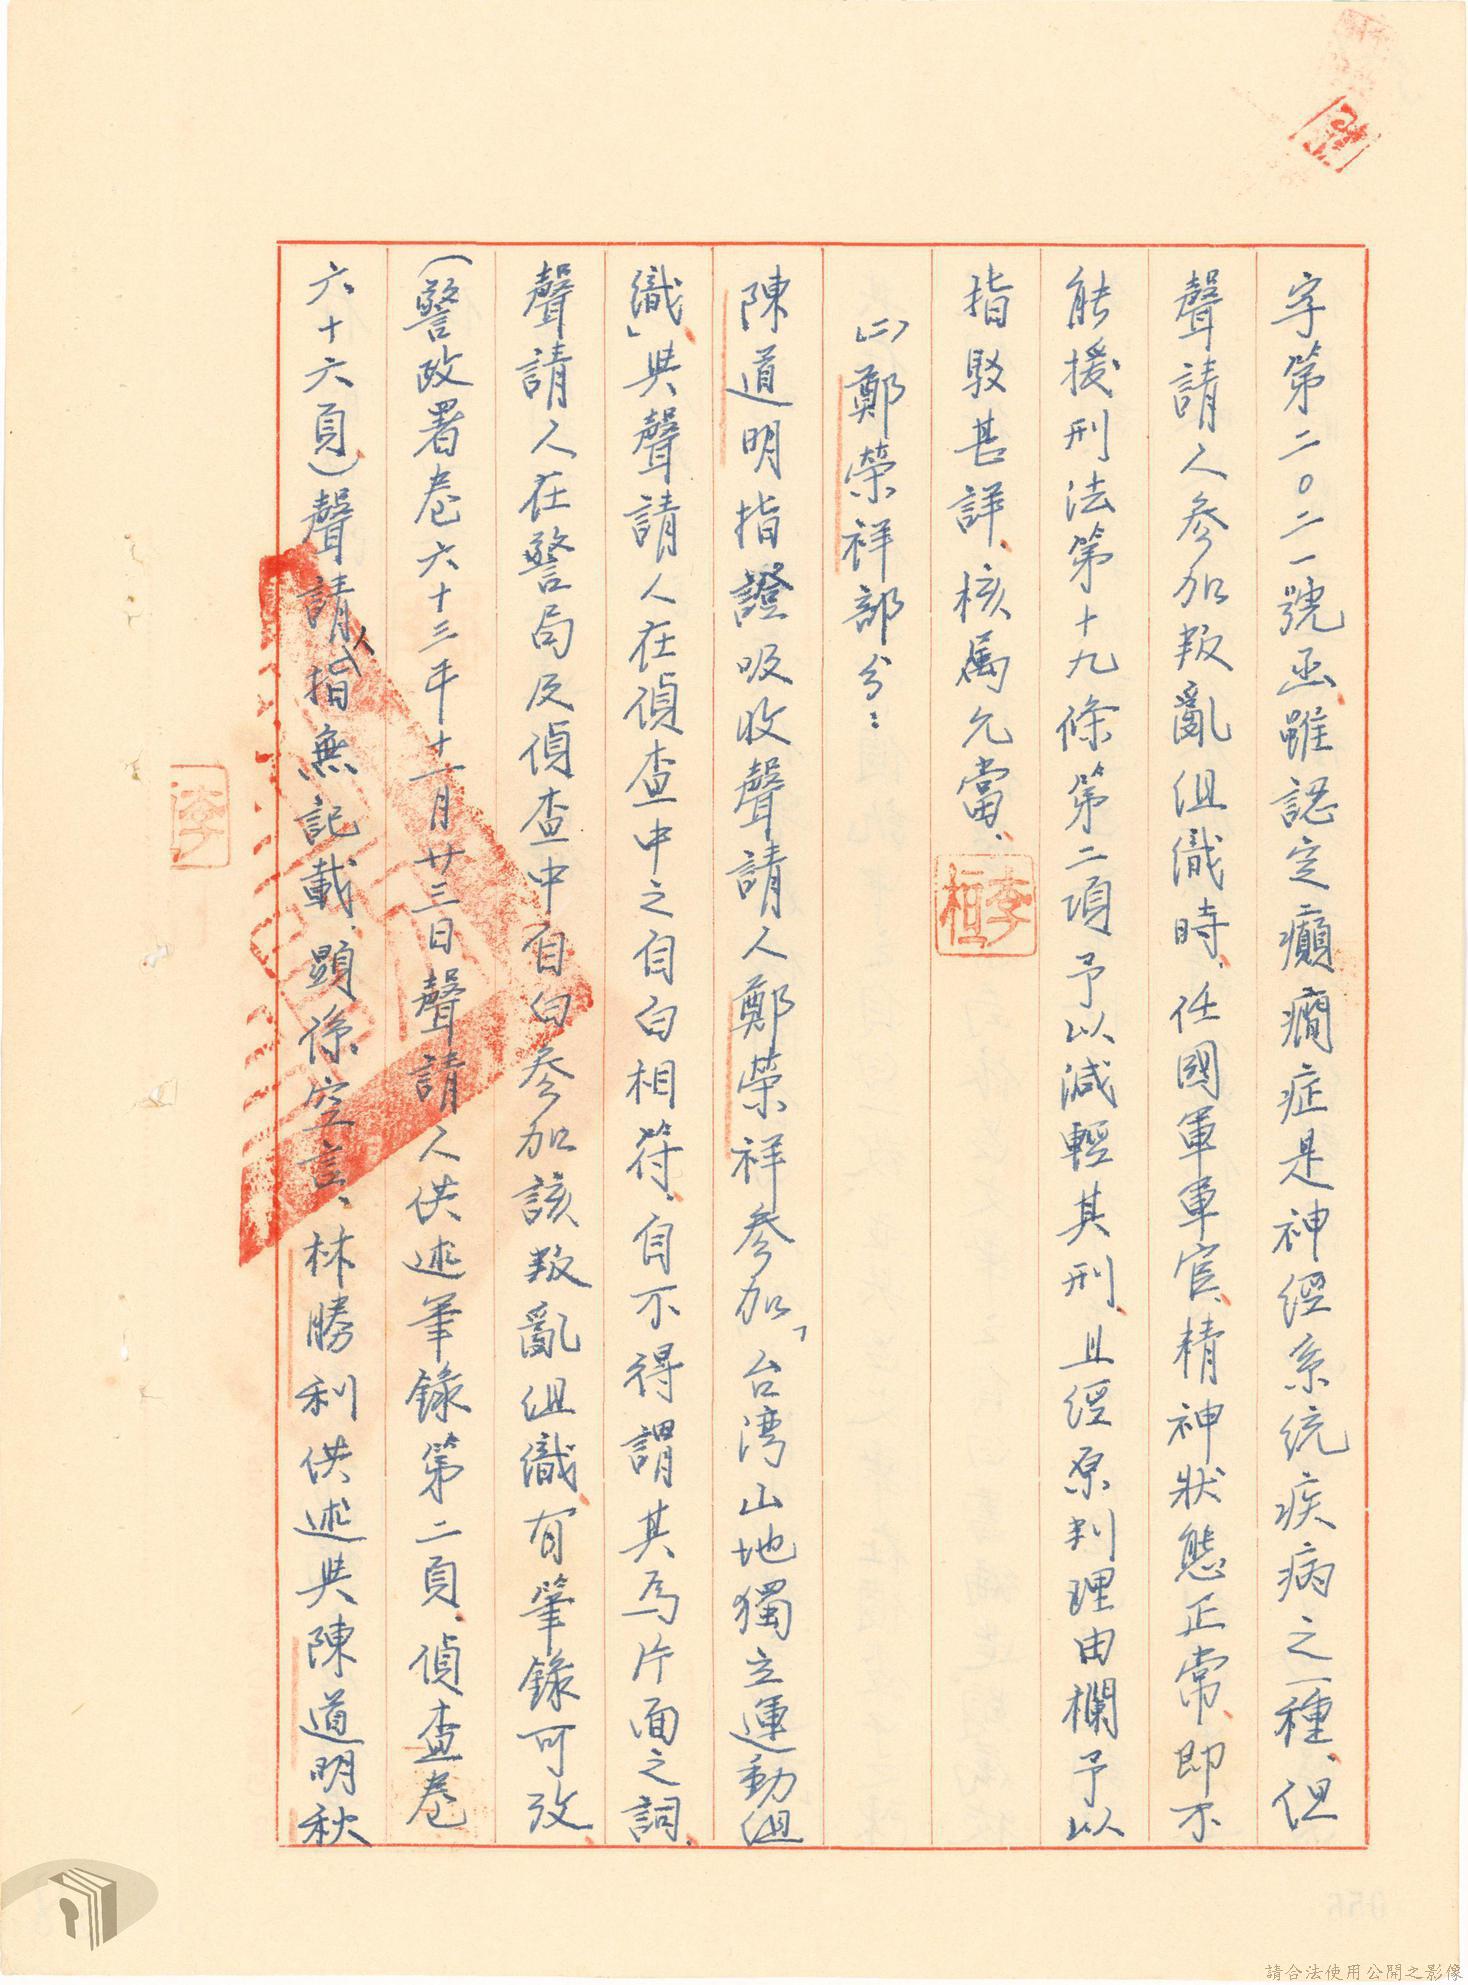 字第二〇二一號函雖認定癲癇症是神經系統疾病之一種、但
聲請人參加叛亂組織時、任國軍軍官、精神狀態正常、即不
能援刑法第十九條第二項予以減輕其刑、且經原判理由欄予以
指駁甚詳、核屬允當、
李桓
(二)鄭榮祥部分：
陳道明指證吸收聲請人鄭榮祥參加「台湾山地獨立運動組
織」與聲請人在偵查中之自白相符、自不得謂其為片面之詞、
聲請人在警局及偵查中自白參加該叛亂組織、有筆錄可考、
(警政署卷六十三年十一月廿三日聲請人供述筆錄第二頁、偵查卷
六十六頁)聲請人指無記載、顯係空言、林勝利供述與陳道明秋
李
請合法使用公開之影像